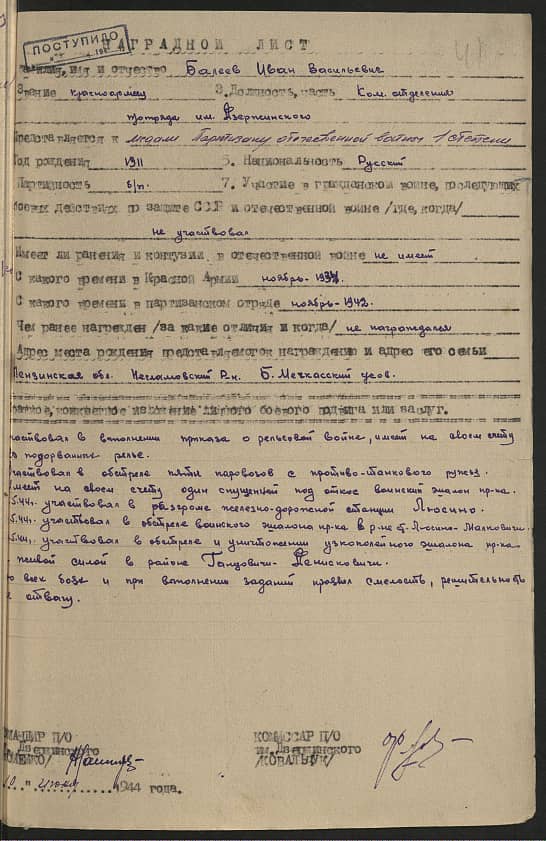 ПОСТУПИЛО
НАГРАДНОЙ ЛИСТ
имя и отчество Балеев Иван Васильевич
Звание красноармеец 3. Должность, часть Ком. отделения
отряда им. Дзержинского
Представляется к медали Партизану отечественной войны 1 степени
Год рождения 1911 5. Национальность Русский
Партийность б/п. 7. Участие в гражданской войне, последующих
боевых действиях по защите ССР и отечественной войне /где, когда/
не участвовал
Имеет ли ранения и контузии в отечественной войне не имеет
С какого времени в Красной Армии ноябрь-
С какого времени в партизанском отряде ноябрь-1942.
Чем ранее награжден /за какие отличия и когда/ не награждался
Адрес места рождения представляемого к награждению и адрес его семьи
Пензинская обл. р-н. Б. Мечкасский
конкретное изложение личного боевого подвига или заслуг.
участвовал в выполнении приказа о рельсовой войне, имеет на своем счету
подорванных рельс.
участвовал в обстреле пяти паровозов с противо-танкового ружья.
имеет на своем счету один спущенный под откос воинский эшалон пр-ка.
5.44г. участвовал в разгроме железно-дорожной станции Люсино.
5.44г. участвовал в обстреле воинского эшалона пр-ка в р-не Люсино-Малковичи.
5.44г. участвовал в обстреле и уничтожении узкоколейного эшалона пр-ка
живой силой в районе Ганцовичи-Денисковичи.
всех боях и при выполнении заданий проявил смелость, решительность
отвагу.
КОМАНДИР П/О КОМИССАР П/О
Дзержинского им. Дзержинского
/КОВАЛЬЧУК/
1944 года.